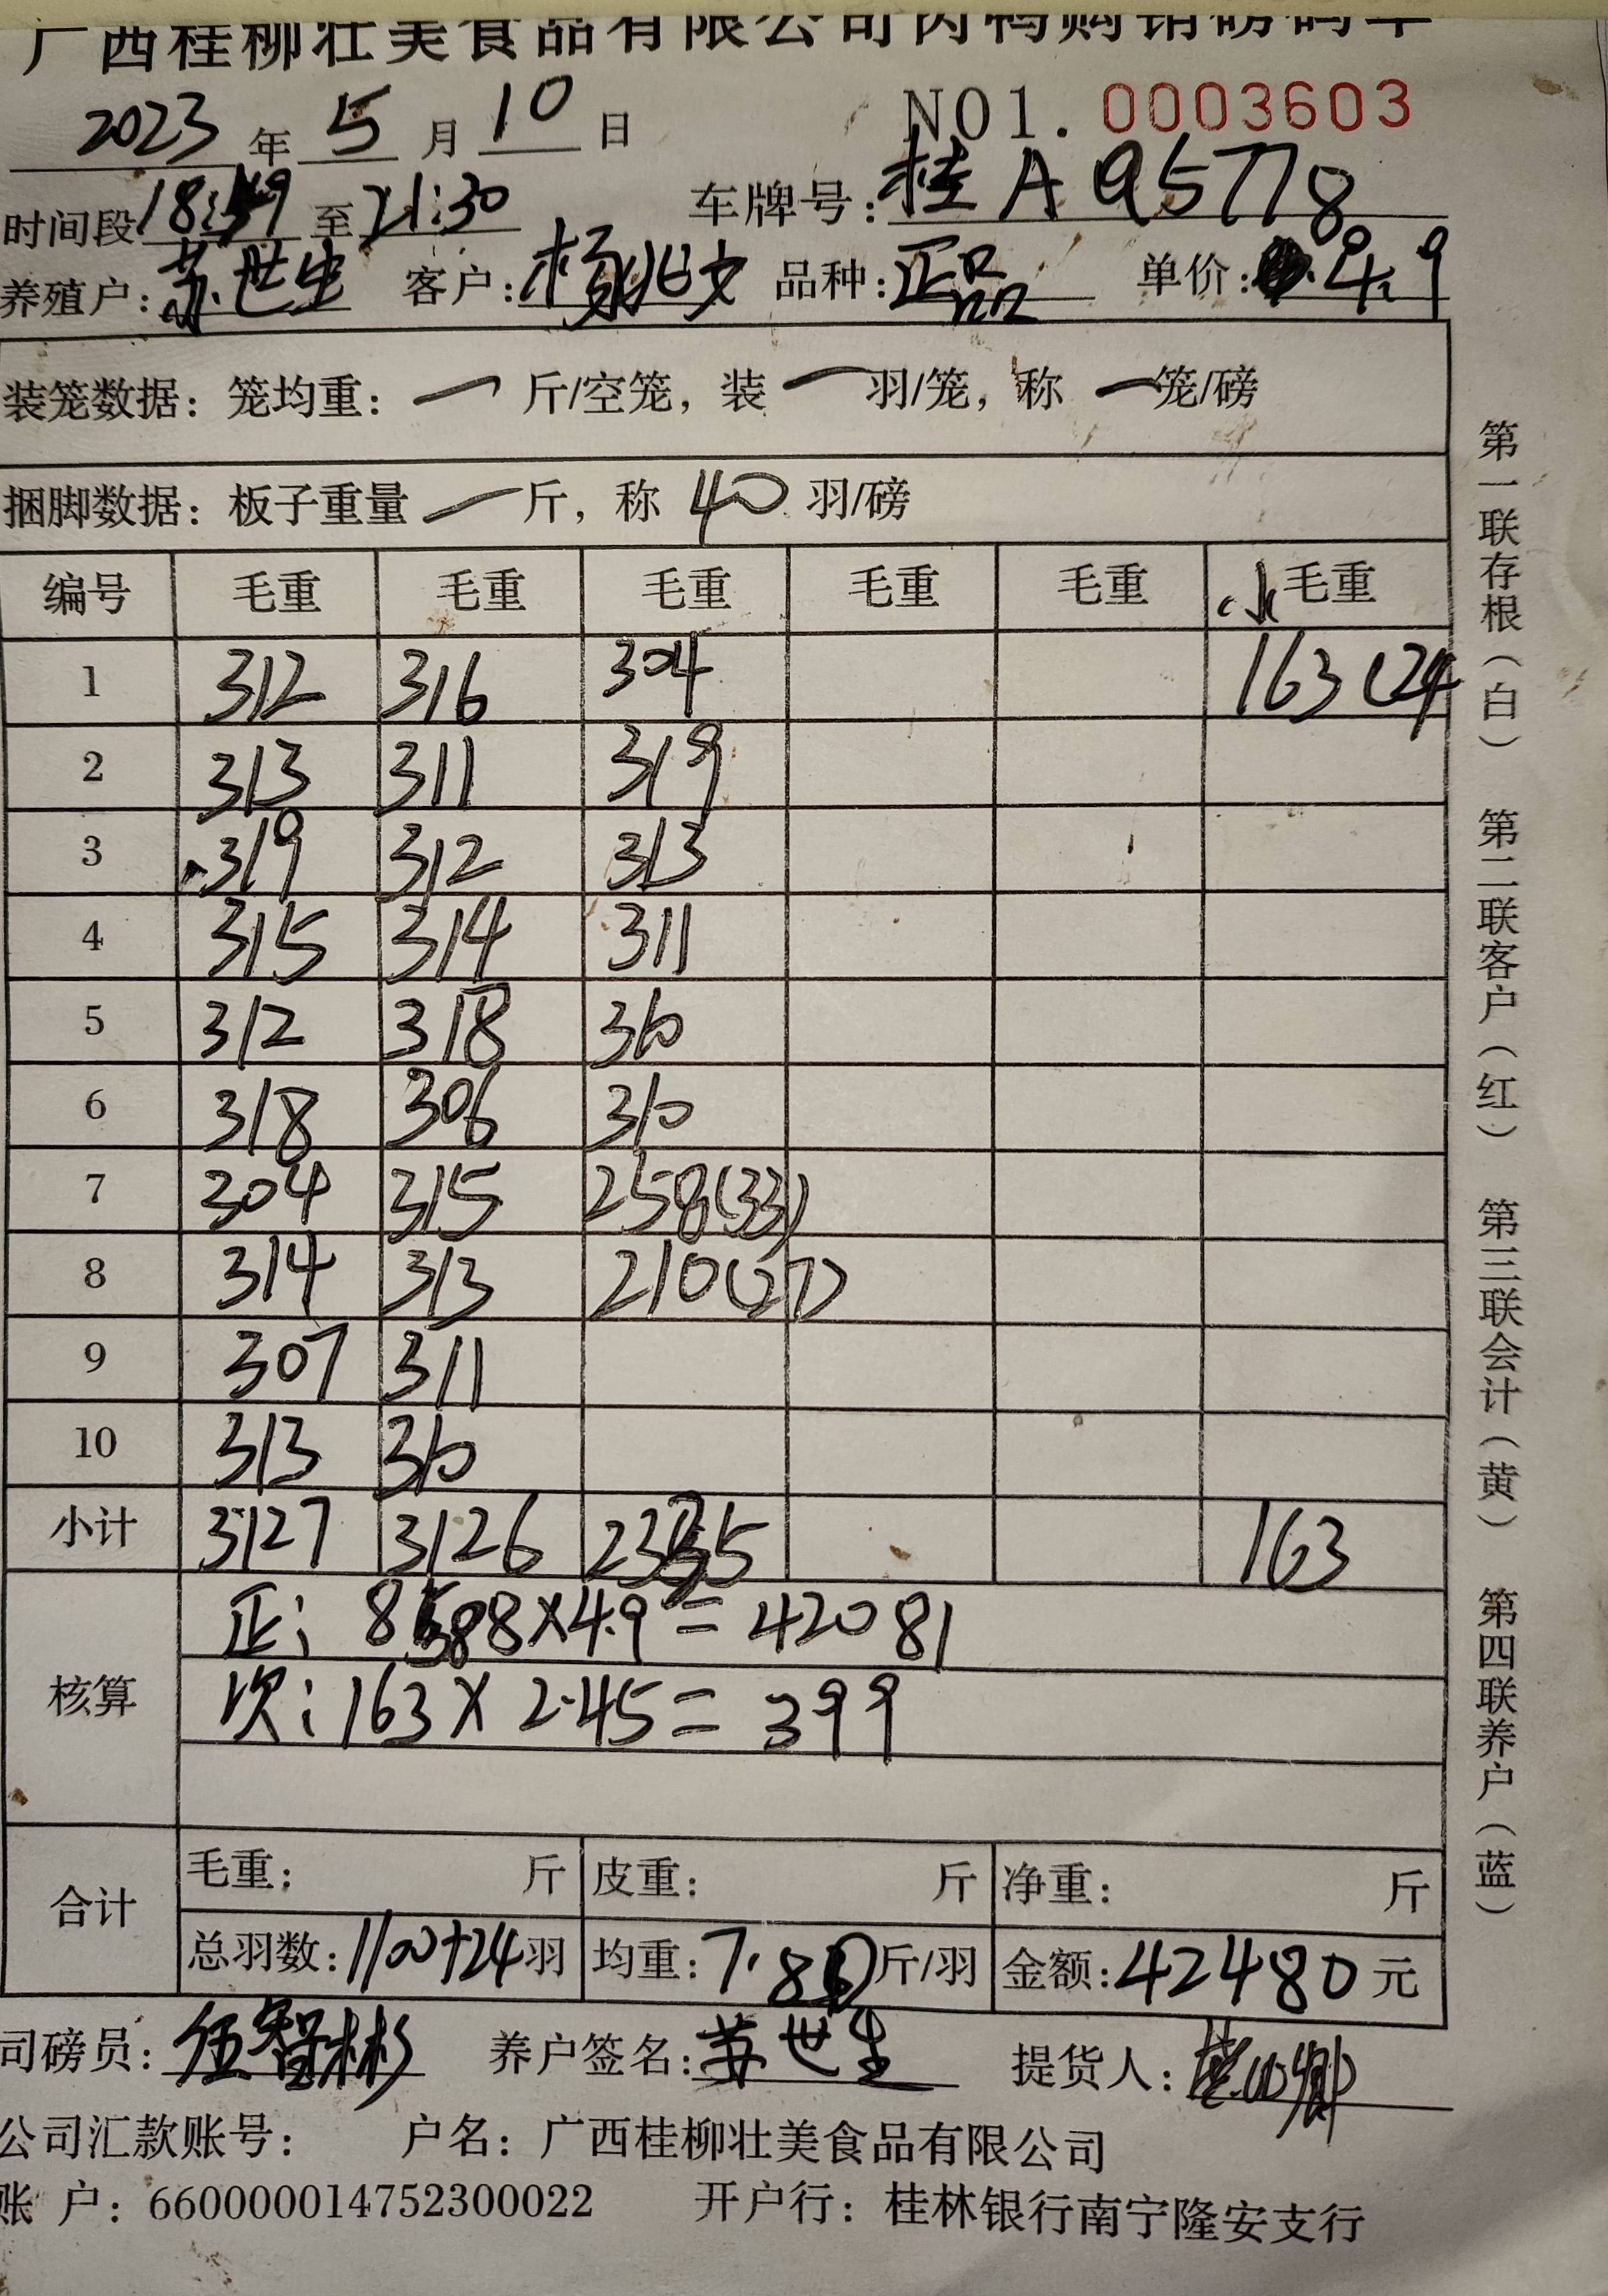 广西桂柳壮美食品有限公司肉鸭购销磅码单
2023 年 5 月 10 日 NO1. 0003603
时间段 18:49 至 21:30 车牌号: 桂A95778
养殖户: 苏世生 客户: 杨兆文 品种: 正品 单价: 4.9
装笼数据: 笼均重: 一 斤/空笼, 装 一 羽/笼, 称 一 笼/磅
捆脚数据: 板子重量 一 斤, 称 40 羽/磅
编号 毛重 毛重 毛重 毛重 毛重 小毛重
1 312 316 304 163(24
2 313 311 319
3 319 312 313
4 315 314 311
5 312 318 310
6 318 306 310
7 304 315 258(33)
8 314 313 210(27)
9 307 311
10 313 310
小计 3127 3126 2335 163
核算
正: 8588×4.9=42081
次: 163×2.45=399
合计
毛重: 斤 皮重: 斤 净重: 斤
总羽数: 1100+24 羽 均重: 7.80 斤/羽 金额: 42480 元
司磅员: 伍智彬 养户签名: 苏世生 提货人:
公司汇款账号: 户名: 广西桂柳壮美食品有限公司
账 户: 660000014752300022 开户行: 桂林银行南宁隆安支行
第一联存根(白) 第二联客户(红) 第三联会计(黄) 第四联养户(蓝)